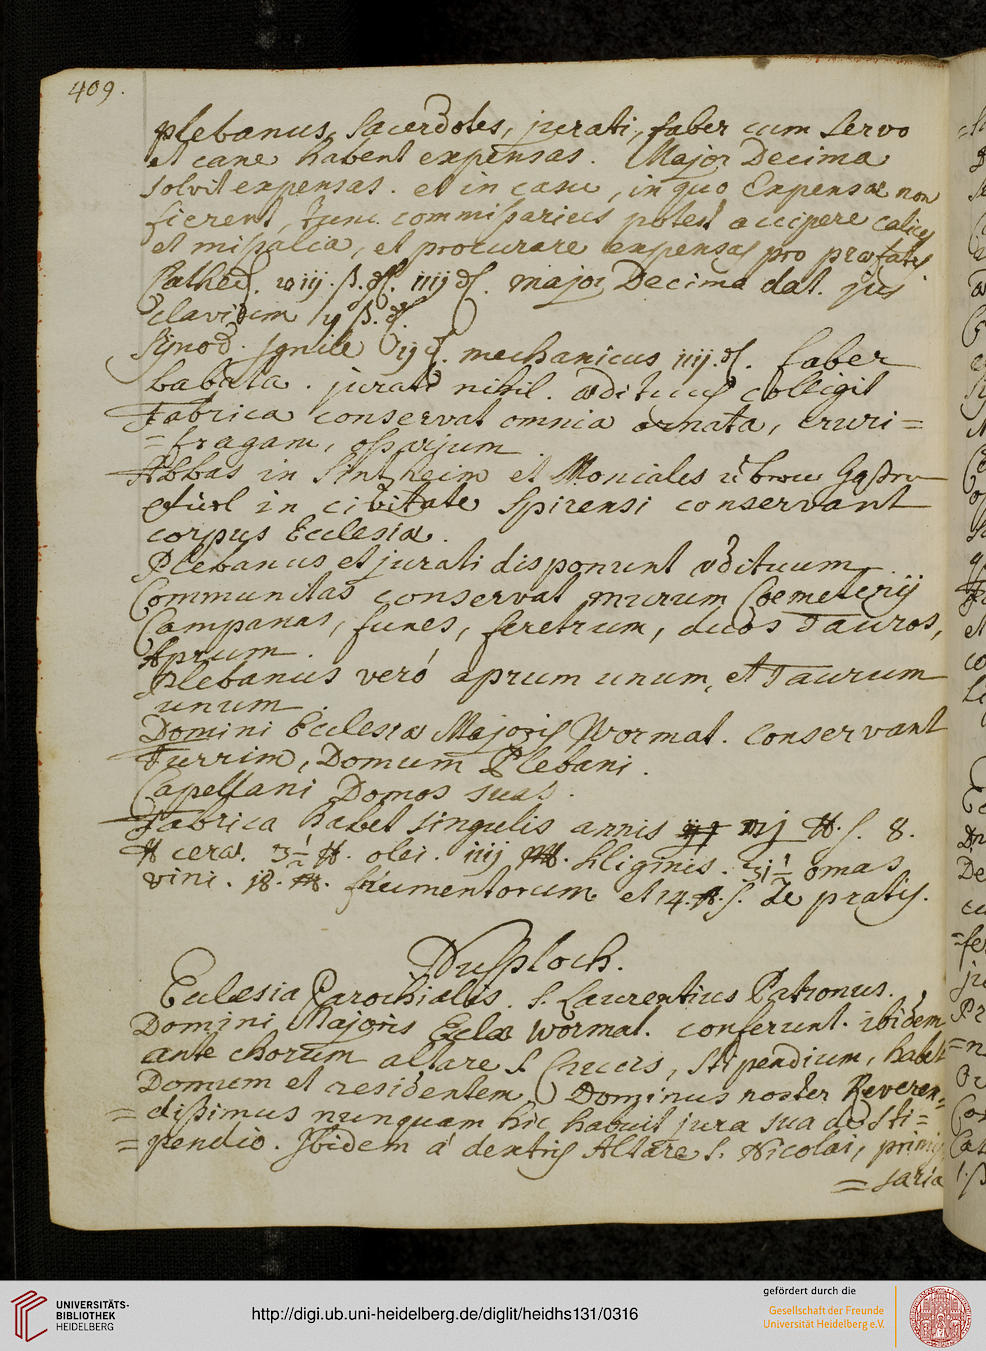 409.
plebanus, Sacerdotes, jurati, faber cum servo
et cane habent expensas. Major Decima
solvit expensas. et in casu, in quo Expensæ non
fierent, tunc commissarius potest accipere calices
et missalia, et procurare expensas pro præfatis
Cathed. viij. ß. ₰. iiij ₰. major Decima dat. jus
clavium ij ß. ₰.
Synod. Ignile ij ₰. mechanicus iiij. ₰. faber
babata. jurati nihil. ædituus colligit
Fabrica conservat omnia ornata, cruri=
=fragam, ossarium.
Abbas in Sintzheim et Moniales
in civitate Spirensi conservant
corpus Ecclesiæ.
Plebanus et jurati disponunt ædituum.
Communitas conservat murum Coemeterij
Campanas, funes, feretrum, duos Tauros,
Aprum.
Plebanus verò aprum unum, et Taurum
unum.
Domini Ecclesiæ Majoris Wormat. conservant
Turrim, Domum Plebani.
Capellani Domos suas.
Fabrica habet singulis annis ℔. 8.
℔ ceræ. 3½ ℔. olei. iiij siliginis. omas
vini. j8. frumentorum et 14. ℔. de pratis.
Dussploch.
Ecclesia Parochialis. S. Laurentius Patronus.
Domini Majoris Eclæ Wormat. conferunt. ibidem
ante chorum altare S. Crucis, stipendium, habet
Domum et residentem, Dominus noster Reveren=
=dissimus nunquam hic habuit jura sua de sti=
=pendio. Ibidem à dextris Altare S. Nicolai, primis
=saria
UNIVERSITÄTS-
BIBLIOTHEK
HEIDELBERG
http://digi.ub.uni-heidelberg.de/diglit/heidhs131/0316
gefördert durch die
Gesellschaft der Freunde
Universität Heidelberg e.V.